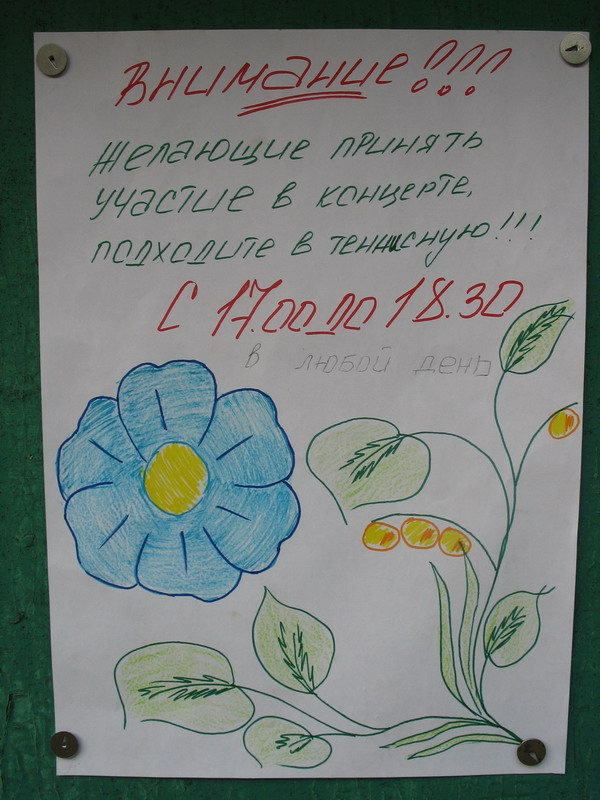 Внимание!!!
Желающие принять
участие в концерте,
подходите в теннисную!!!
С 17.00 до 18.30
в любой день